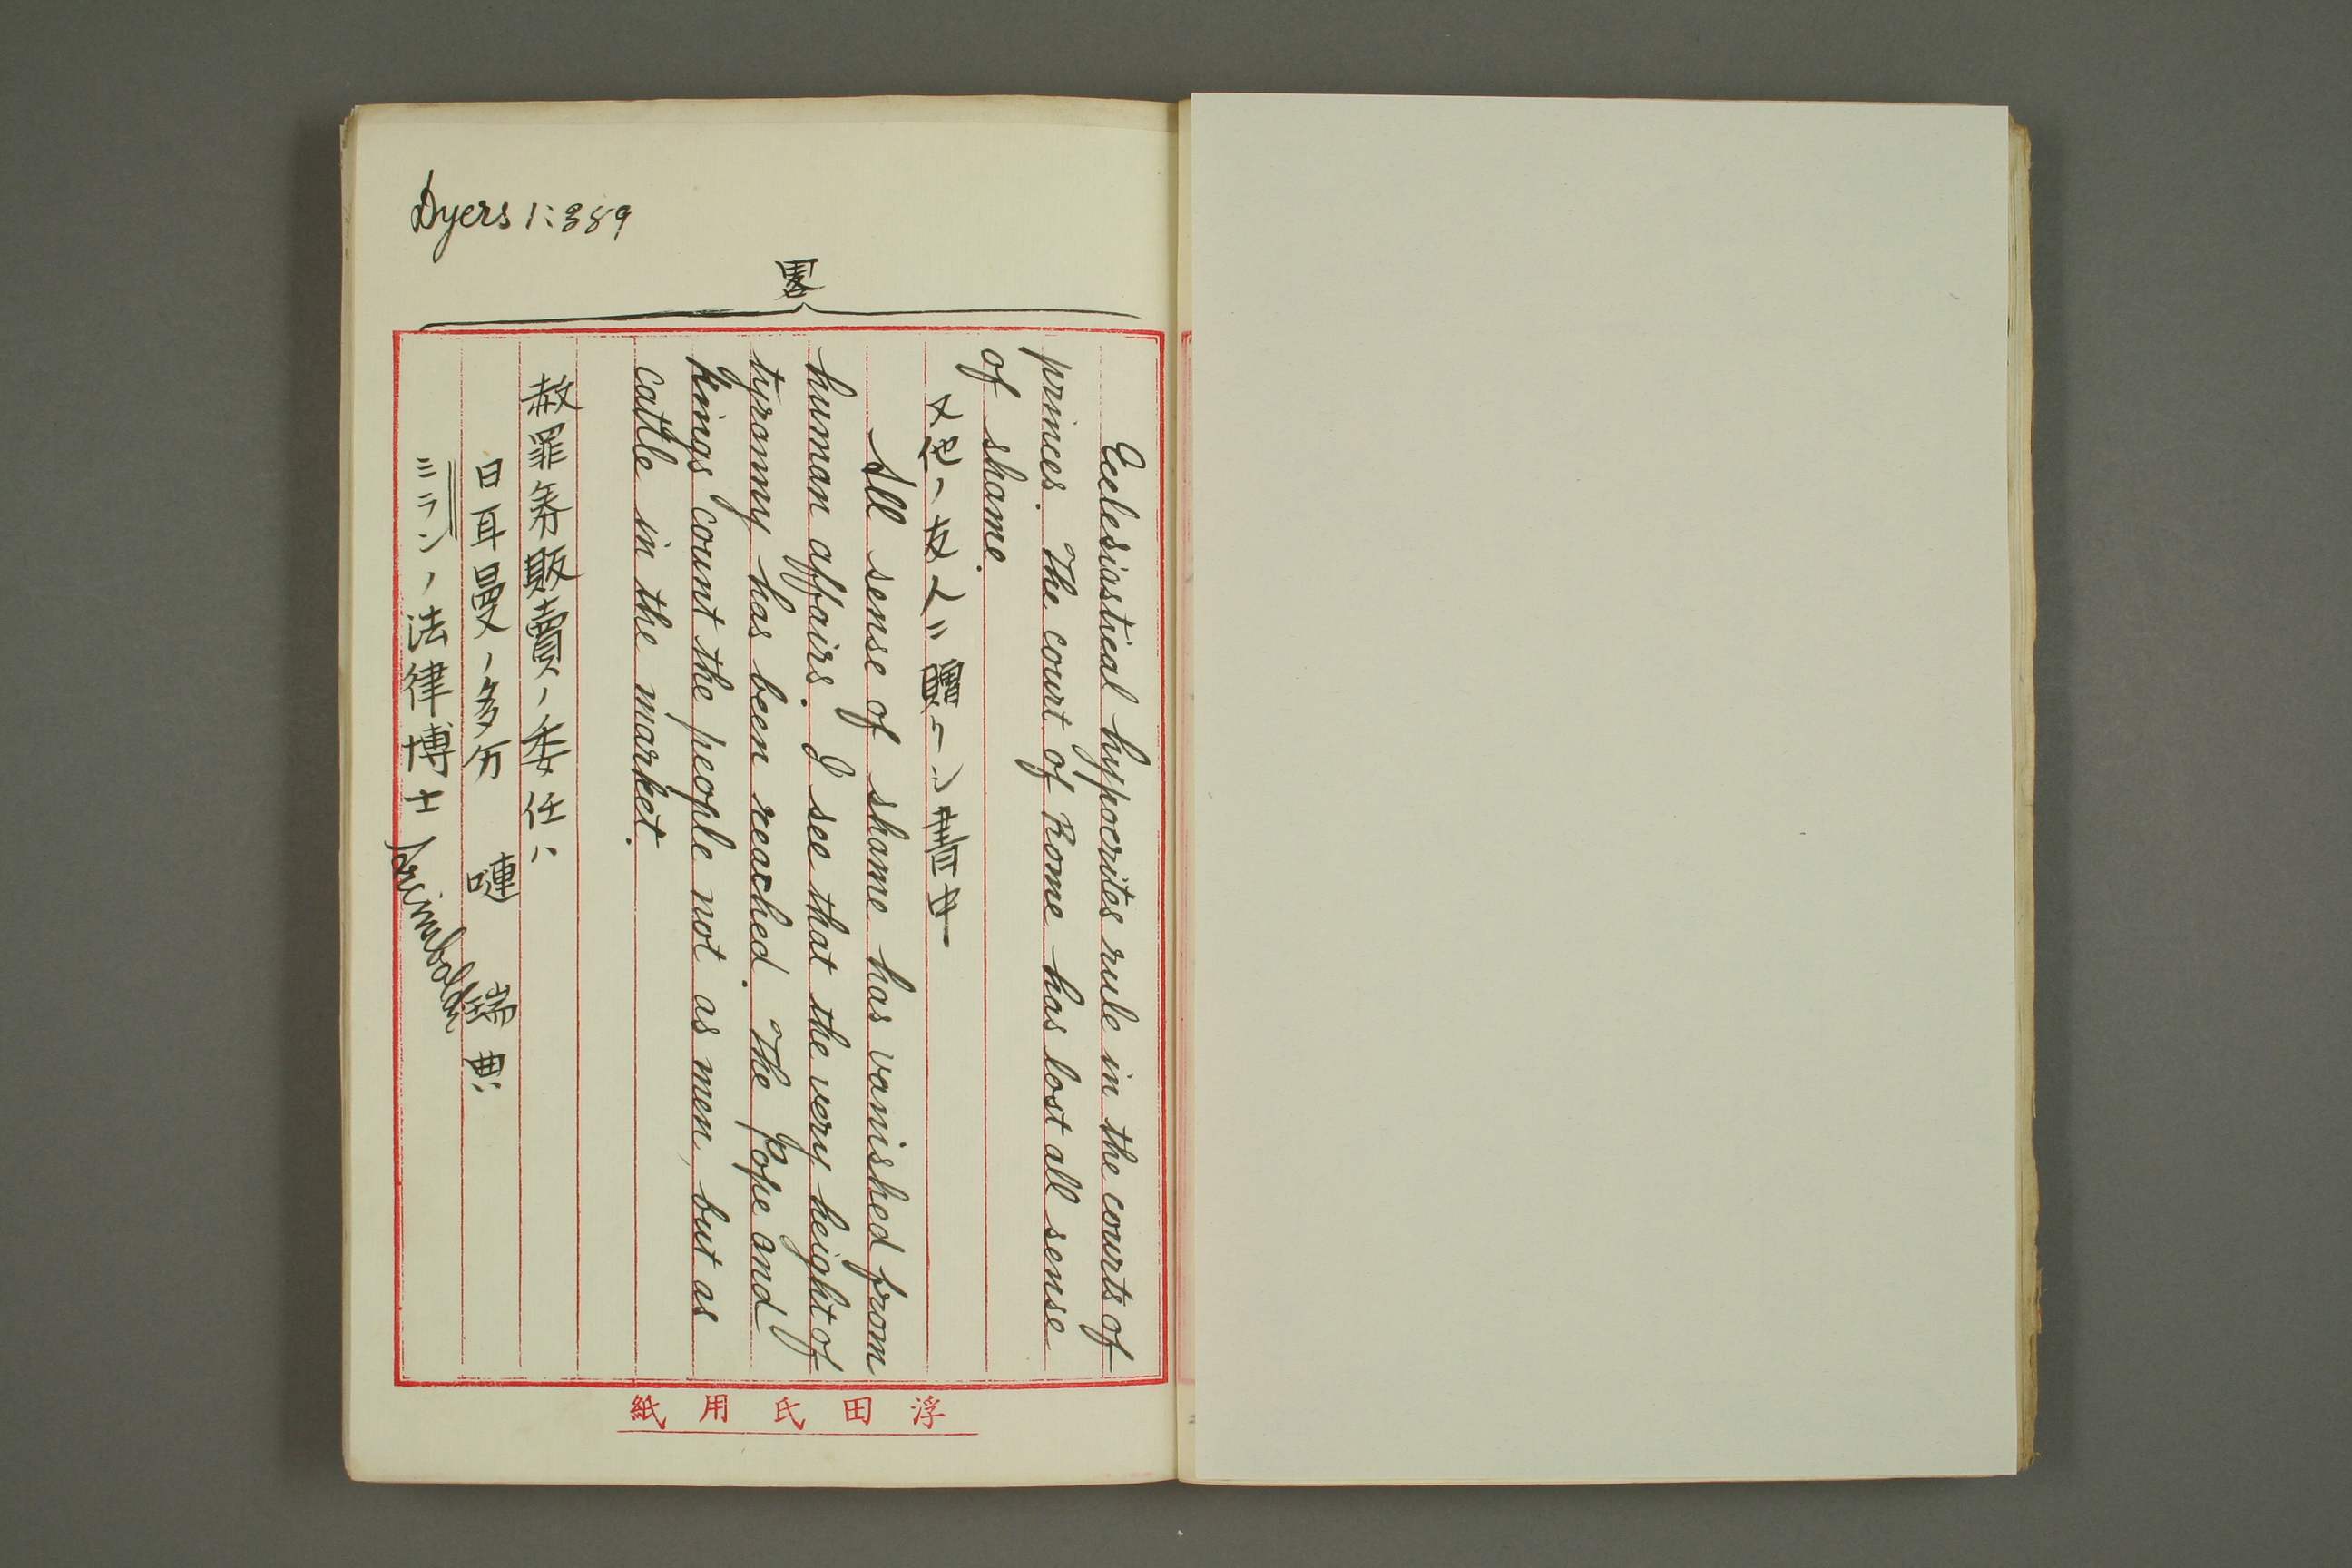 Dyers 1:389
畧
Ecclesiastical hypocrites rule in the courts of
princes. The court of Rome has lost all sense
of shame.
又他ノ友人ニ贈リシ書中
All sense of shame has vanished from
human affairs. I see that the very height of
tyranny has been reached. The Pope and
kings count the people not as men, but as
cattle in the market.
赦罪券販賣ノ委任ハ
日耳曼ノ多分 嗹 瑞典
ミランノ法律博士 Arcimboldi
浮田氏用紙